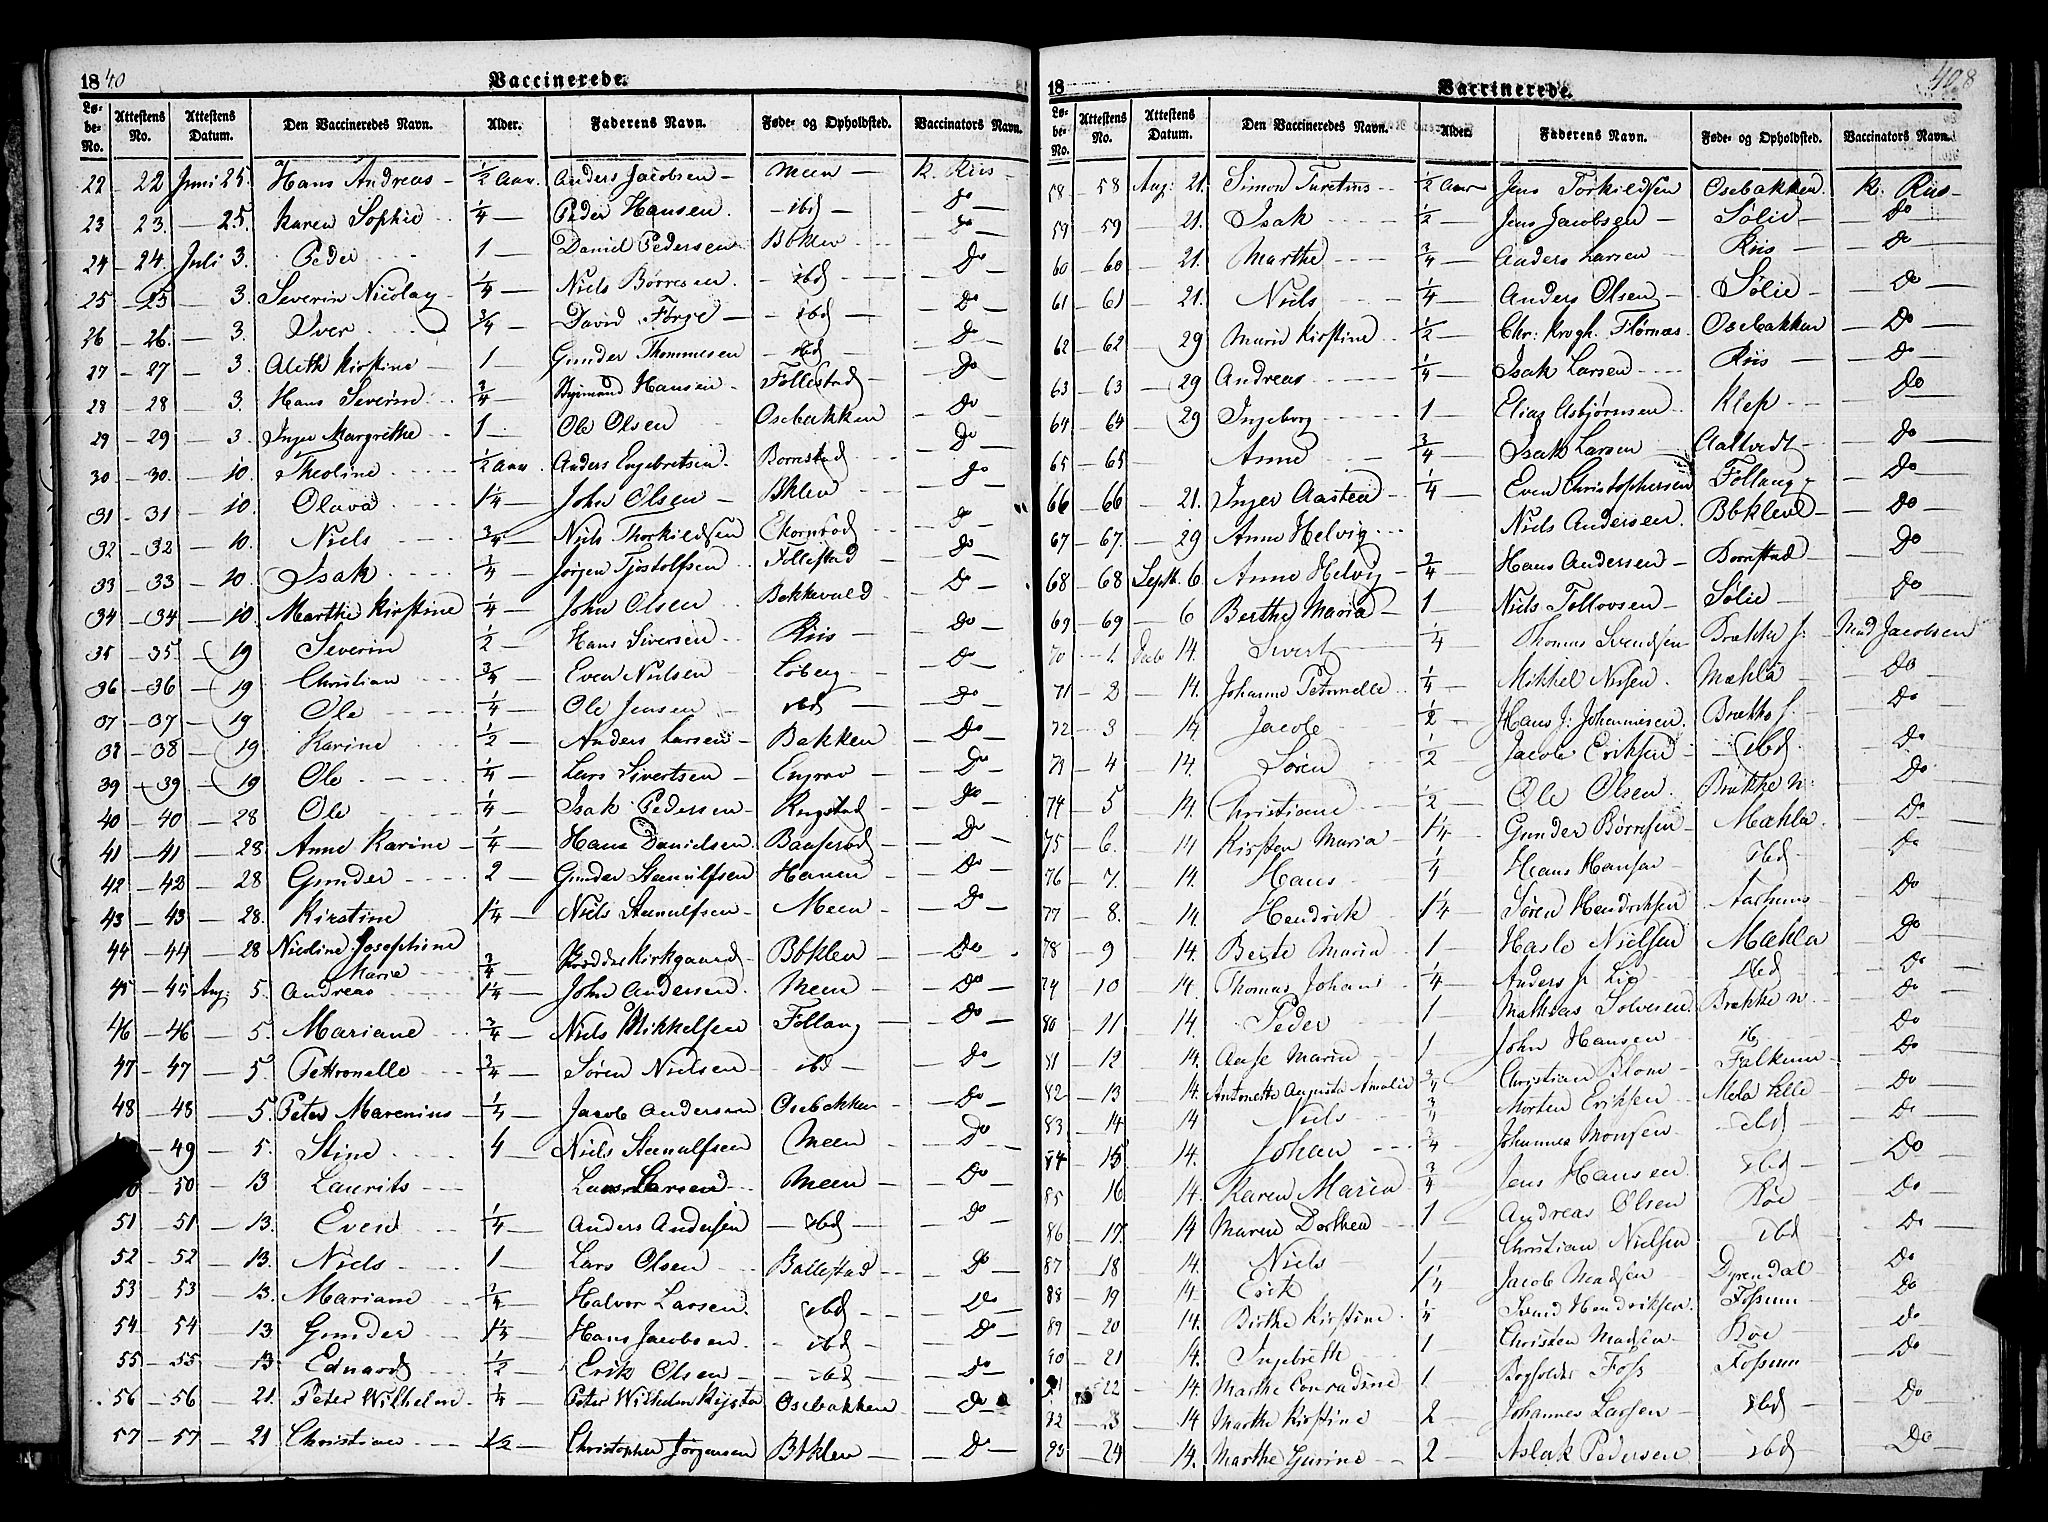 1840 Vaccinerede.
Lø-be-No. Attestens No. Attestens Datum. Den Vaccineredes Navn. Alder. Faderens Navn. Føde- og Opholdsted. Vaccinators Navn.
22 - 22 Juni 25. Hans Andreas - 1/2 Aar. Anders Jacobsen - Meen - K. Riis -
23 - 23. - 25. Karen Sophie - 1/4 - Peder Hansen. - ibd - Do
24 - 24. Juli 3. Peder 1 - Daniel Pedersen Böklev - Do
25 - 25 - 3. Severin Nicolay 1/4 - Niels Børresen. - ibd - Do
26 - 26. - 3. Iver 3/4 - David - ibd - Do
27 - 27 - 3. Aleth Kirstine 1 - Gunder Thommesen - ibd - Do
28 - 28 - 3. Hans Severin 3/4 - Hansen - Follestad - Do
29 - 29 - 3. Inger Margrethe 1 - Ole Olsen Osebakken - Do
30 - 30. - 10. Theoline 1/2 Aar. Anders Engebretsen. Borrestad - Do
31 - 31 - 10. Olava 1 1/4 - John Olsen - Böklev - Do
32 - 32 - 10. Niels 3/4 - Niels Thorkildsen Ekornrød - Do
33 - 33 - 10. Isak 1/4 - Jørgen Tjostolfsen Follestad - Do
34 - 34 - 10. Marthe Kirstine 1/4 - John Olsen Bakkevald - Do
35 - 35 - 19 Severin 1/2 - Hans Siversen Riis - Do
36 - 36 - 19 Christian 3/4 - Even Nielsen Løberg - Do
37 - 37 - 19 Ole 1/4 - Ole Jensen ibd - Do
38 - 38 - 19 Karine 1/2 - Anders Larsen - Bakken - Do
39 - 39 - 19 Ole 1/4 - Lars Sivertsen - - Do
40 - 40 - 28 Ole 1/4 - Isak Pedersen - Rugstad - Do
41 - 41 - 28 Anne Karine - 1/4 - Hans Danielsen Baaserød - Do
42 - 42 - 28 Gunder 2 - Gunder Steenulfsen Haven - Do
43 - 43 - 28. Kirstine 1 1/4 - Niels Steenulfsen - Meen - Do
44 - 44 - 28 Nicoline Josephine Marie 3/4 - Kirkgaard Böklev - Do
45 - 45 Aug. 5. Andreas 1 1/4 - John Andersen Meen - Do
46 - 46 - 5. Mariane 3/4 - Niels Mikkelsen Follaug - Do
47 - 47 - 5. Pettronelle 3/4 - Søren Nielsen - ibd - Do
48 - 48 - 5. Peter Marenius 1/4 - Jacob Andersen Osebakken - Do
- 49 - 5. Stine 4 Niels Steenulfsen Meen - Do
50 - 50 - 13 Laurits Lars Larsen Meen - Do
51 - 51 - 13. Even 1/4 - Anders Andersen - ibd - Do
52 - 52 - 13. Niels 1 - Lars Olsen Ballestad - Do
53 - 53 - 13. Mariane 3/4 - Halvor Larsen ibd - Do
54 - 54 - 13. Gunder 1 1/4 - Hans Jacobsen - ibd - Do
55 - 55 - 13 Eduard 1/2 - Erik Olsen - ibd - Do
56 - 56 - 21. Peter Wilhelm 1/4 - Peter Wilhelm Osebakken - Do
57 - 57 - 21 Christian 1/2 - Christopher Jørgensen Böklev - Do
18 Vaccinerede. 408
Lø-be-No. Attestens No. Attestens Datum. Den Vaccineredes Navn. Alder. Faderens Navn. Føde- og Opholdsted. Vaccinators Navn.
58 - 58 Aug: 21. Simon 1/2 Aar - Jens Torkildsen Osebakken. K. Riis -
59 - 59 - 21. Isak 1/2 - Jens Jacobsen - Sølie - Do
60 - 60 - 21. Marthe 3/4 - Anders Larsen Riis - Do
61 - 61 - 21. Niels 1/4 - Anders Olsen - Sølie - Do
62 - 62 - 29 Maren Kirstine 1/2 - Chr: Krogh. Osebakken - Do
63 - 63 - 29 Andreas 1/4 - Isak Larsen Riis - Do
64 - 64 - 29 Ingeborg 1 - Elias Asbjørnsen Klep - Do
65 - 65 Anne 3/4 - Isak Larsen Aaltvedt - Do
66 - 66 - 21. Inger Aasten - 1/4 - Even Christophersen Follaug - Do
67 - 67. - 29 Anne Helvig Niels Andersen. Böklev - Do
68 - 68 Septb. 6. Anne Helvig 2/4 - Hans Andersen Borrestad - Do
69 - 69 - 6 Berthe Maria - 1 - Niels Tollovsen - Sølie - Do
70 - 1. Decb 14. Sivert 1/4 Thomas Svendsen Brekke s. Mad Jacobsen
71 - 2 - 14. Johanne Petronelle 1/4 - Mikkel Mæhla - Do
72 - 3 14 Jacob 1/2 - Hans J: Johannesen. Brekke s. - Do
73 - 4 14. Søren 1/2 - Jacob Eriksen - ibd. - Do
74 - 5 14. Christiane 1/2 - Ole Olsen Brekke n: - Do
75 - 6. 14 Kirsten Maria 1 1/4 - Gunder Børresen Mæhla. - Do
76 - 7. 14. Hans 1/4 - Hans Hansen ibd - Do
77 - 8. 14. Hendrik 1 1/4 - Søren Hendriksen Aarhuus - Do
78 - 9 14. Berte Maria 1 - Hasle Nielsen Mæhla - Do
79 - 10 14. Thomas Johan 1/4 - Anders J. Lie ibd - Do
80 - 11 14. Peder 1 - Mathias Solvesen. Brekke n. - Do
81 - 12 14. Aase Maria 1 - John Hansen - Do
82 - 13 14. Antonette Augusta Amalie 3/4 Christian Blom Falkum - Do
83 - 14 14 Niels 3/4 Morten Eriksen Mela lille - Do
84 - 15 14. Johan 3/4 Johannes Monsen - ibd - Do
85 16 14. Karen Maria 3/4 Jens Hansen ibd - Do
86 - 17. 14 Maren Dorthea 1 - Andreas Olsen Röe - Do
87 - 18 14. Niels 1 - Christian Nielsen ibd - Do
88 - 19 14. Erik 1 1/4 Jacob Madsen Dyrendal - Do
89 - 20 14. Birthe Kirstine 1/4 Svend Hendriksen. Fossum - Do
90 - 21 14. Ingebreth 1 Christen Madsen Röe - Do
91 22 14. Marthe Conradine 1. Bogholder Foss Fossum - Do
92 - 23 14 Marthe Kirstine 2 Johannes Larsen - ibd - Do
93 - 24 14. Marthe Gurine - 2 Aslak Pedersen ibd - Do